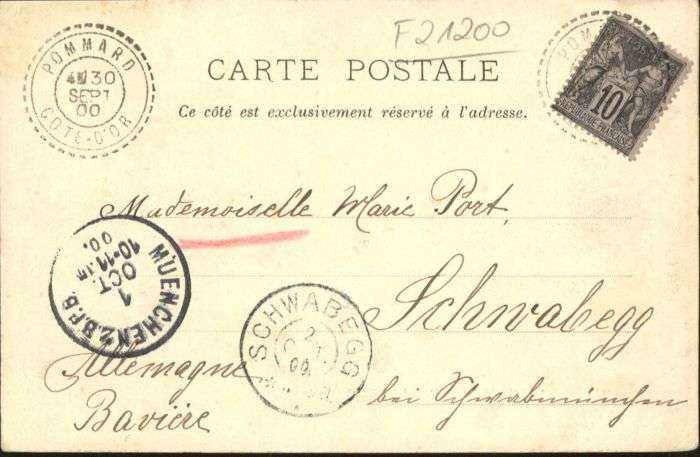 F21200
POMMARD
30
SEPT
00
COTE-D'OR
POM
10
CARTE POSTALE
Ce côté est exclusivement réservé à l'adresse.
Mademoiselle Marie Port,
MUENCHEN 2.B.P.B.
1
OCT.
10-11
00.
SCHWABEGG
2
00.
Schwabegg
bei Schwabmünchen
Allemagne
Bavière